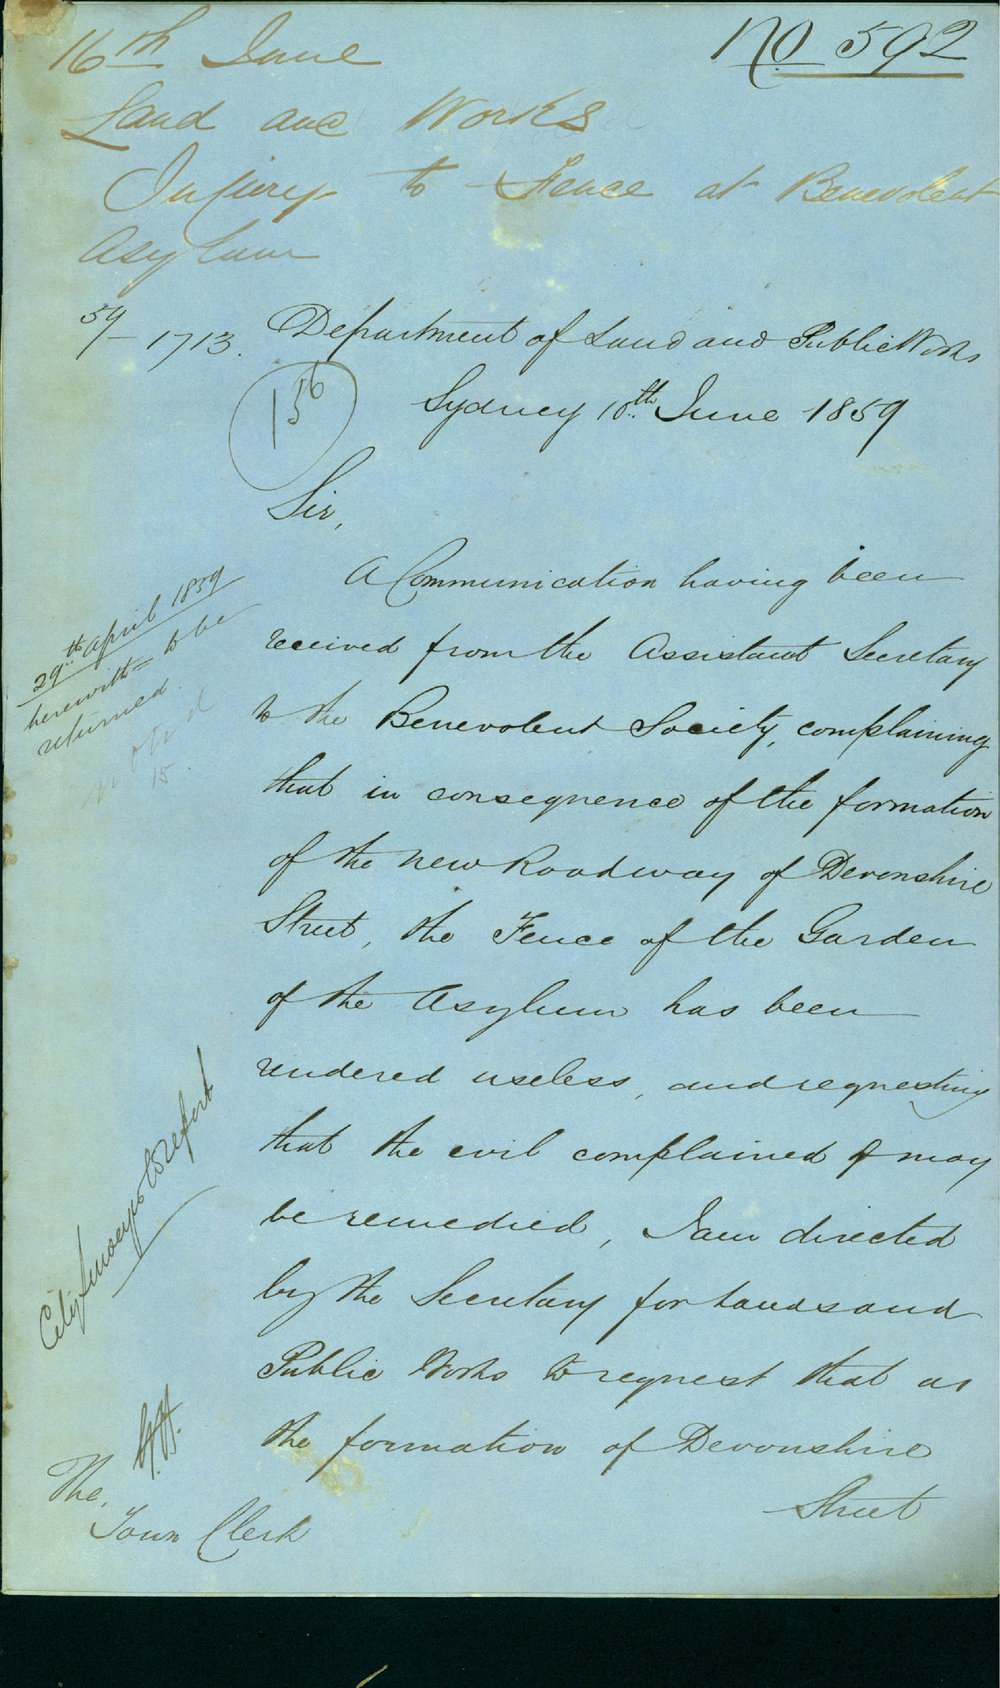 16th June
No 592
Land and Works
Injury to Fence at Benevolent
Asylum
59/-1713.
Department of Land and Public Works
156
Sydney 10th June 1859
Sir,
A Communication having been
29th April 1859
herewith = to be
returned
15.
received from the Assistant Secretary
to the Benevolent Society, complaining
that in consequence of the formation
of the new Roadway of Devonshire
Street, the Fence of the Garden
of the Asylum has been
rendered useless, and requesting
that the evil complained of may
be remedied, I am directed
by the Secretary for Lands and
Public Works to request that as
the formation of Devonshire
Street
City Surveyor to report
The,
Town Clerk